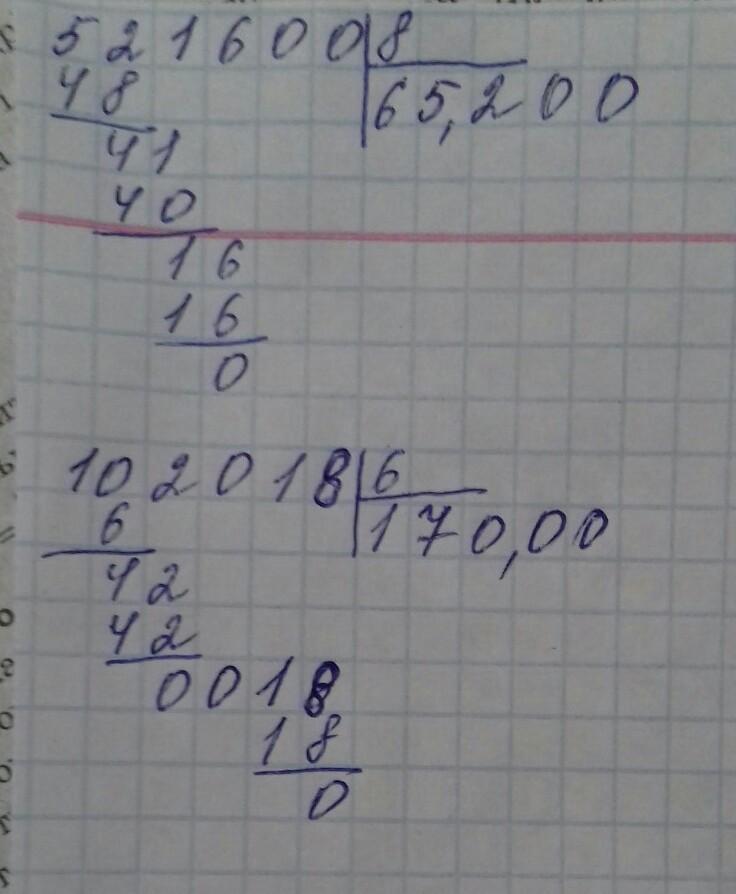 521600 8
48 65,200
41
40
16
16
0
102018 6
6 170,00
42
42
0018
18
0